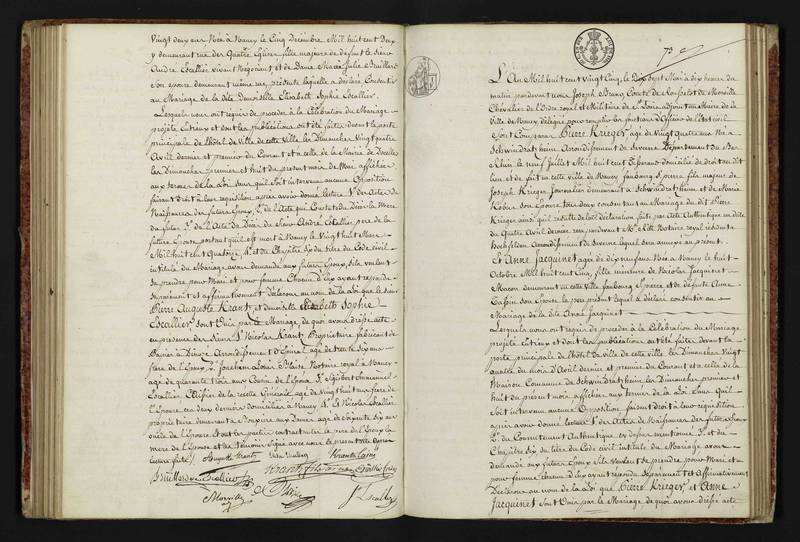 Vingt deux ans Née à Nancy le Cinq Décembre Mil huit cent Deux
y demeurant rue des Quatre Eglises fille majeure de défunt le sieur
André Escallier vivant Négociant et de Dame Marie Julie Bouillard
son épouse demeurant même rue, présente laquelle a déclaré Consentir
au Mariage de la dite demoiselle Elisabeth Sophie Escallier.
Lesquels nous ont requis de procéder à la Célébration du Mariage
projeté Entreux et dont les publications ont été faites devant la porte
principale de l'hôtel de Ville de cette Ville, les Dimanches Vingt quatre
Avril dernier et premier du Courant et à celle de la Mairie de
les Dimanches premier et huit du présent mois de Mai affichées
aux termes de la Loi sans qu'il soit intervenu aucune Opposition
faisant Droit à leur réquisition après avoir donné lecture 1º des Actes de
Naissances des futurs Epoux, 2º de l'Acte qui Constate du Décès la Mère
du futur 3º de l'Acte de Décès du Sieur André Escallier père de la
future Epouse portant qu'il est mort à Nancy le Vingt huit Mars
Mil huit cent Quatorze 4º et du Chapitre Six du titre du Code civil
intitulé du Mariage avons demandé aux futurs Epoux, s'ils veulent
se prendre pour Mari et pour femme, Chacun d'Eux ayant répondu
Séparément et affirmativement Déclarons au nom de la Loi que le sieur
Pierre Auguste Krantz et demoiselle Elisabeth Sophie
Escallier sont Unis par le Mariage, de quoi avons dressé acte
en présence des Sieurs 1º Nicolas Krantz Propriétaire fabricant de
Papier à Arrondissement d'Epinal agé de trente six ans
frère de l'Epoux, 2º Notaire royal à Nancy
agé de quarante trois ans Cousin de l'Epoux 3º Sigisbert Emmanuel
Escallier Caissier de la recette Générale agé de vingt huit ans frère de
l'Epouse ces deux derniers domiciliés à Nancy 4º Et Nicolas Escallier
propriétaire demeurant à agé de soixante six ans
oncle de l'Epouse et ont les parties contractantes le père de l'Epoux la
mère de l'Epouse et les témoins signé avec nous le présent acte après
lecture faite /
Auguste Krantz
Krantz
Krantz fils ainé
J. Escallier
7º
L'An Mil huit cent Vingt Cinq, le Dix Sept Mai à dix heures du
matin pardevant nous Joseph Comte de
Chevalier de l'Ordre royal et Militaire de St Louis adjoint au Maire de la
Ville de Nancy, délégué pour remplir les fonctions d'Officier de l'Etat civil
Sont Comparus Pierre Krieger agé de Vingt quatre ans Né à
Schwindratzheim Arrondissement de Saverne Département du Bas
Rhin, le neuf Juillet Mil huit cent domicilié de droit au dit
lieu et de fait en cette ville de Nancy faubourg St pierre fils majeur de
Joseph Krieger Journalier demeurant à Schwindratzheim et de Marie
son Epouse tous deux consentant au Mariage du dit Pierre
Krieger ainsi qu'il résulte de la Déclaration faite par Acte Authentique en date
du Quatre Avril dernier reçu pardevant Me Notaire royal résidant à
hochfelden Arrondissement de Saverne lequel sera annexé au présent.
Et Anne Jacquinet agée de dix neuf ans Née à Nancy le huit
Octobre Mil huit cent Cinq, fille mineure de Nicolas Jacquinet
Macon demeurant en cette Ville faubourg St pierre et de défunte Anne
son Epouse le père présent lequel a déclaré consentir au
Mariage de la dite Anne Jacquinet
Lesquels nous ont requis de procéder à la Célébration du Mariage
projeté Entreux et dont les publications ont été faites devant la
porte principale de l'hôtel de Ville de cette ville, les Dimanches Vingt
quatre du mois d'Avril dernier et premier du Courant et à celle de la
Maison Commune de Schwindratzheim les Dimanches premier et
huit du présent mois affichées aux termes de la Loi sans qu'il
soit intervenu aucune Opposition, faisant droit à leur réquisition
après avoir donné lecture 1º des Actes de Naissances des futurs Epoux
2º du Consentement Authentique ci dessus mentionné 3º et du
Chapitre Six du titre du Code civil intitulé du Mariage avons
demandé aux futurs Epoux s'ils veulent se prendre pour Mari et
pour femme, chacun d'Eux ayant répondu Séparément et affirmativement
Déclarons au nom de la Loi que Pierre Krieger et Anne
Jacquinet sont Unis par le Mariage, de quoi avons dressé acte